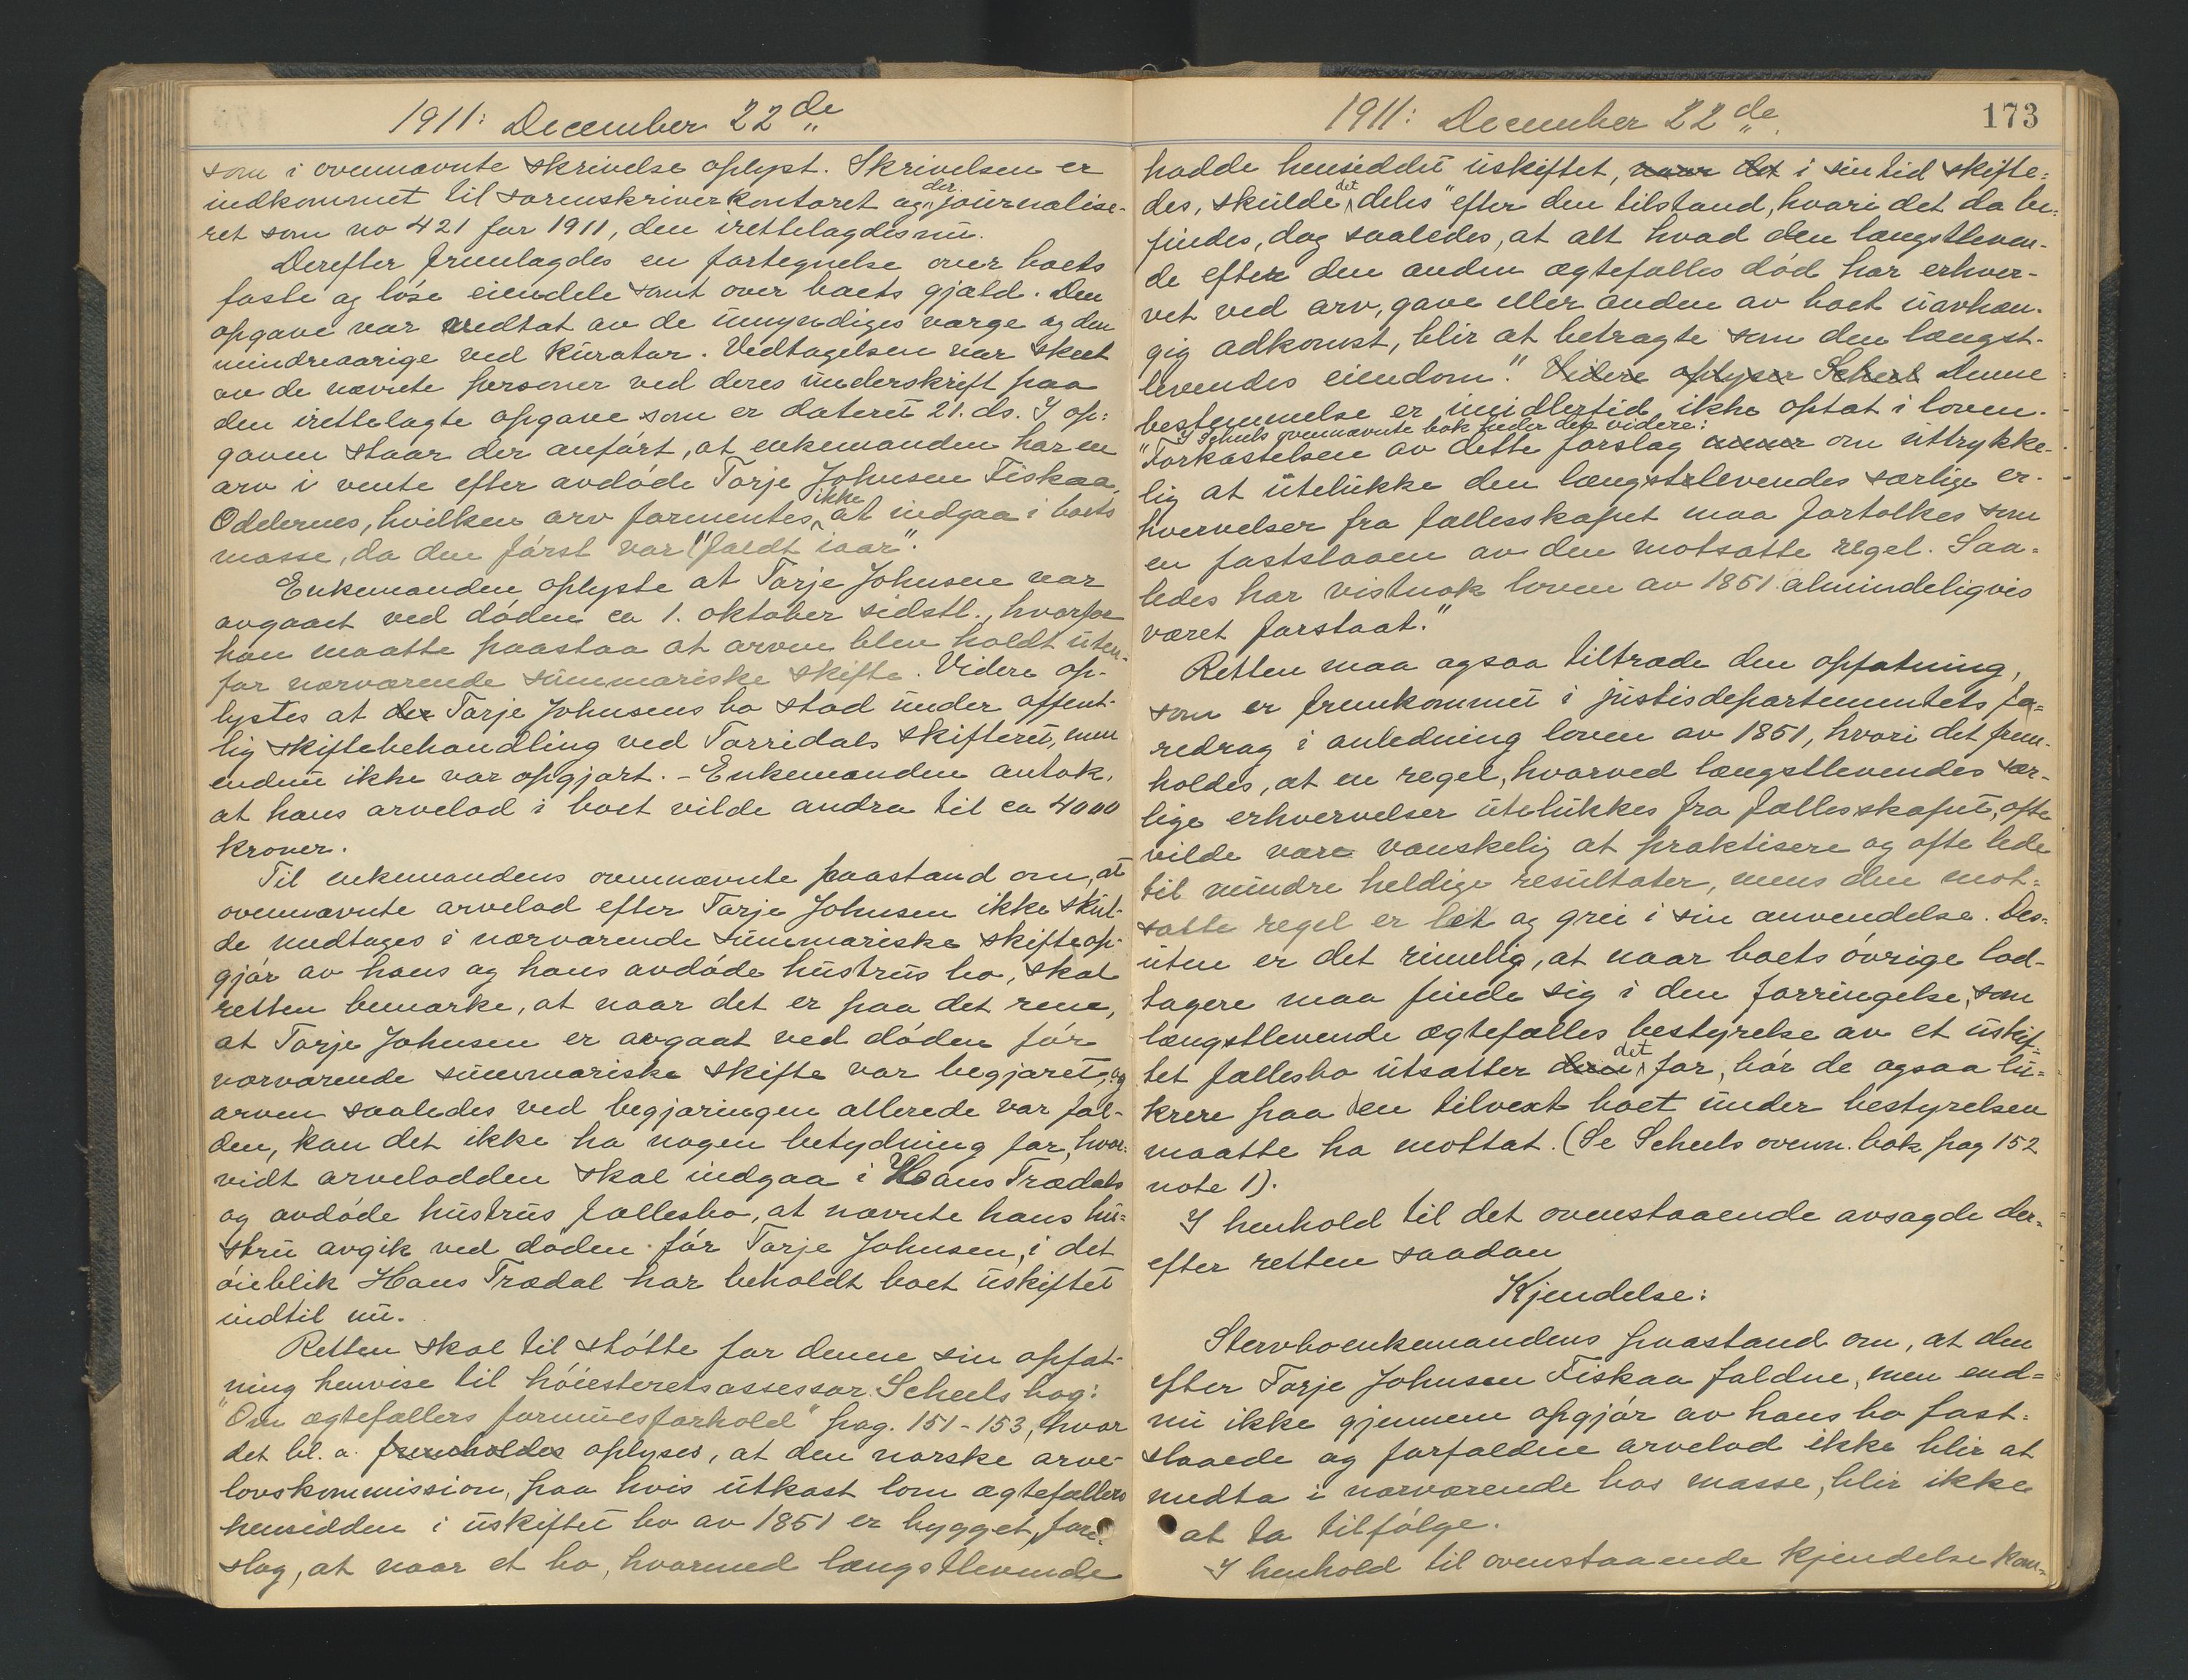 1911: December 22de
som i ovennævnte skrivelse oplyst. Skrivelsen er
indkommet til sorenskriverkontoret og der journalise-
ret som no 421 for 1911, den irettelagdes nu.
Derefter fremlagdes en fortegnelse over boets
faste og løse eiendele samt over boets gjæld. Den
opgave var vedtat av de umyndiges værge og den
mindreaarige ved kurator. Vedtagelsen var skeet
av de nævnte personer ved deres underskrift paa
den irettelagte opgave som er dateret 21. ds. I op-
gaven staar der anført, at enkemanden har en
arv i vente efter avdøde Torje Johnsen Fiskaa,
Oddernes, hvilken arv formentes ikke at indgaa i boets
masse, da den først var "faldt iaar".
Enkemanden oplyste at Torje Johnsen var
avgaaet ved døden ca 1. oktober sidstl., hvorfor
han maatte paastaa at arven blev holdt uten-
for nærværende summariske skifte. Videre op-
lystes at der Torje Johnsens bo stod under offent-
lig skiftebehandling ved Torridals skifteret, men
endnu ikke var opgjort. - Enkemanden antok,
at hans arvelod i boet vilde andra til ca 4000
kroner.
Til enkemandens ovennævnte paastand om, at
ovennævnte arvelod efter Torje Johnsen ikke skul-
de medtages i nærværende summariske skifteop-
gjør av hans og hans avdøde hustrus bo, skal
retten bemærke, at naar det er paa det rene,
at Torje Johnsen er avgaat ved døden før
nærværende summariske skifte var begjæret, og
arven saaledes ved begjæringen allerede var fal-
den, kan det ikke ha nogen betydning for, hvor-
vidt arvelodden skal indgaa i Hans Trædals
og avdøde hustrus fællesbo, at nævnte hans hu-
stru avgik ved døden før Torje Johnsen, i det
øieblik Hans Trædal har beholdt boet uskiftet
indtil nu.
Retten skal til støtte for denne sin opfat-
ning henvise til høiesteretsassessor Scheels bog:
"Om ægtefællers formuesforhold" pag. 151-153, hvor
det bl. a. fremholdes oplyses, at den norske arve-
lovskommission, paa hvis utkast lom ægtefællers
hensidden i uskiftet bo av 1851 er bygget, fore-
slog, at naar et bo, hvormed længstlevende
1911: December 22de
173
hadde hensiddet uskiftet, naar det i sin tid skifte-
des, skulde det deles "efter den tilstand, hvori det da be-
findes, dog saaledes, at alt hvad den længstleven-
de efter den anden ægtefælles død har erhver-
vet ved arv, gave eller anden av boet uavhæn-
gig adkomst, blir at betragte som den længst-
levendes eiendom." Videre oplyser Scheel Denne
bestemmelse er imidlertid ikke optat i loven.
I Scheels ovennævnte bok heder det videre:
"Forkastelsen av dette forslag om uttrykke-
lig at utelukke den længstlevendes særlige er-
hvervelser fra fællesskapet maa fortolkes som
en fastslaaen av den motsatte regel. Saa-
ledes har vistnok loven av 1851 almindeligvis
været forstaat."
Retten maa ogsaa tiltræde den opfatning,
som er fremkommet i justisdepartementets fo-
redrag i anledning loven av 1851, hvori det frem-
holdes, at en regel, hvorved længstlevendes sær-
lige erhvervelser utelukkes fra fællesskapet, ofte
vilde være vanskelig at praktisere og ofte lede
til mindre heldige resultater, mens den mot-
satte regel er let og grei i sin anvendelse. Des-
uten er det rimelig, at naar boets øvrige lod-
tagere maa finde sig i den forringelse, som
længstlevende ægtefælles bestyrelse av et uskif-
tet fællesbo utsætter den det for, bør de ogsaa lu-
krere paa den tilvext boet under bestyrelsen
maatte ha mottat. (Se Scheels ovenn. bok pag 152
note 1).
I henhold til det ovenstaaende avsagde der-
efter retten saadan
Kjendelse:
Stervboenkemandens paastand om, at den
efter Torje Johnsen Fiskaa faldne, men end-
nu ikke gjennem opgjør av hans bo fast-
slaaede og forfaldne arvelod ikke blir at
medta i nærværende bos masse, blir ikke
at ta tilfølge.
I henhold til ovenstaaende kjendelse kan-